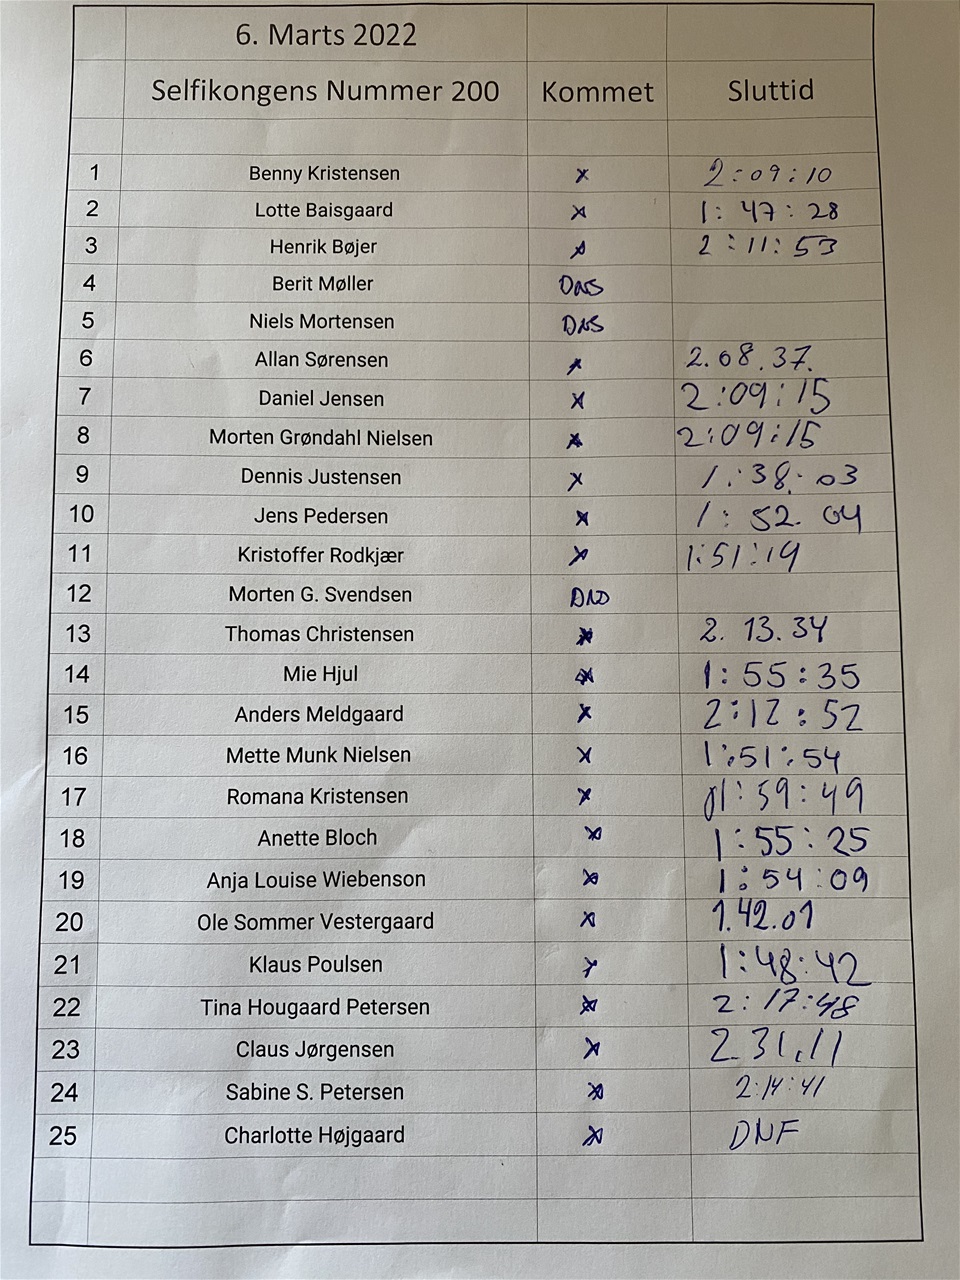 6. Marts 2022
Selfikongens Nummer 200 Kommet Sluttid
1 Benny Kristensen x 2:09:10
2 Lotte Baisgaard x 1:47:28
3 Henrik Bøjer x 2:11:53
4 Berit Møller DNS
5 Niels Mortensen DNS
6 Allan Sørensen x 2.08.37.
7 Daniel Jensen x 2:09:15
8 Morten Grøndahl Nielsen x 2:09:15
9 Dennis Justensen x 1:38:03
10 Jens Pedersen x 1:52.04
11 Kristoffer Rodkjær x 1:51:19
12 Morten G. Svendsen
13 Thomas Christensen x 2.13.34
14 Mie Hjul x 1:55:35
15 Anders Meldgaard x 2:12:52
16 Mette Munk Nielsen x 1:51:54
17 Romana Kristensen x 1:59:49
18 Anette Bloch x 1:55:25
19 Anja Louise Wiebenson x 1:54:09
20 Ole Sommer Vestergaard x 1.42.01
21 Klaus Poulsen x 1:48:42
22 Tina Hougaard Petersen x 2:17:48
23 Claus Jørgensen x 2.31.11
24 Sabine S. Petersen x 2:14:41
25 Charlotte Højgaard x DNF